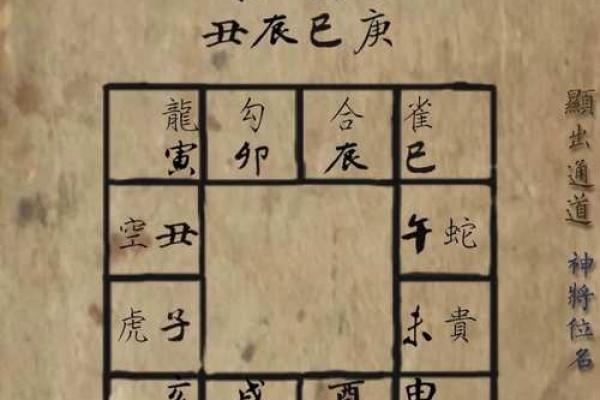 丑辰巳庚
龍 勾 合 雀
寅 卯 辰 巳
空丑 午蛇
虎子 未貴
亥 戌 酉 申
顯出通道
神將位名